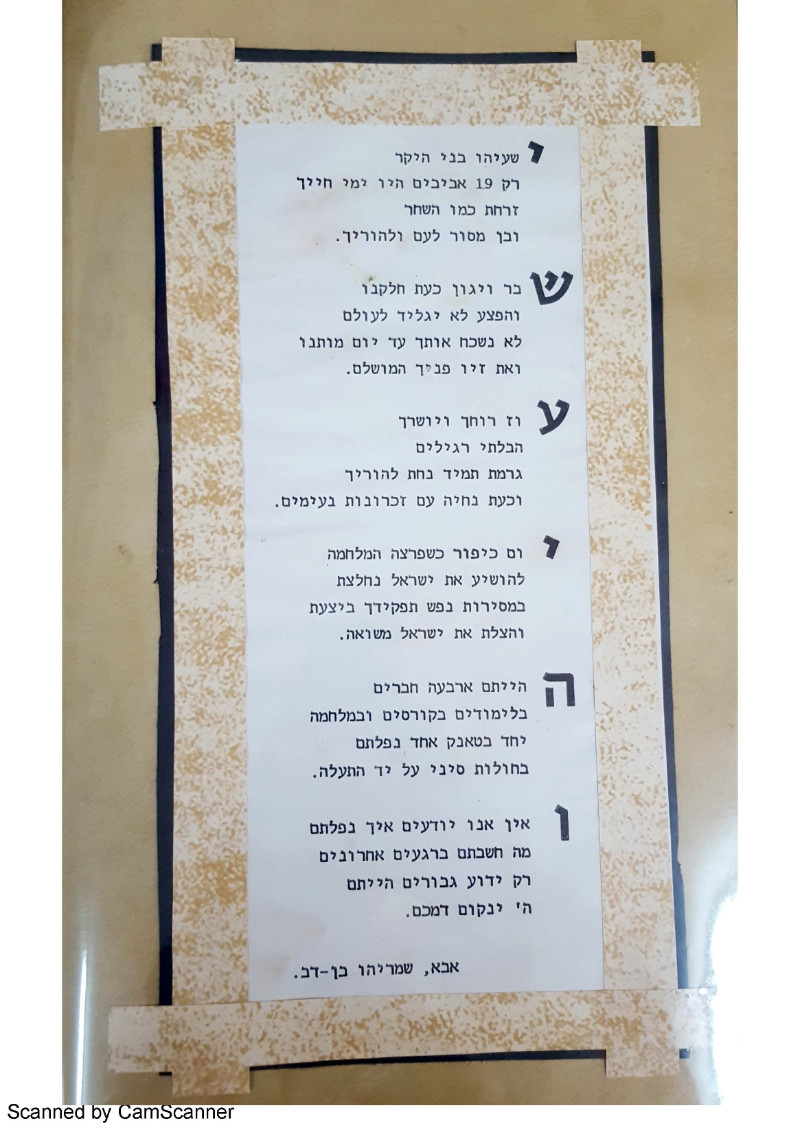 ישעיהו בני היקר
רק 19 אביבים היו ימי חייך
זרחת כמו השחר
ובן מסור לעם ולהוריך.
שבר ויגון כעת חלקנו
והפצע לא יגליד לעולם
לא נשכח אותך עד יום מותנו
ואת זיו פניך המושלם.
עוז רוחך ויושרך
הבלתי רגילים
גרמת תמיד נחת להוריך
וכעת נחיה עם זכרונות נעימים.
יום כיפור כשפרצה המלחמה
להושיע את ישראל נחלצת
במסירות נפש תפקידך ביצעת
והצלת את ישראל משואה.
ה הייתם ארבעה חברים
בלימודים בקורסים ובמלחמה
יחד בטאנק אחד נפלתם
בחולות סיני על יד התעלה.
ו אין אנו יודעים איך נפלתם
מה חשבתם ברגעים אחרונים
רק ידוע גבורים הייתם
ה' ינקום דמכם.
אבא, שמריהו בן-דב.
Scanned by CamScanner